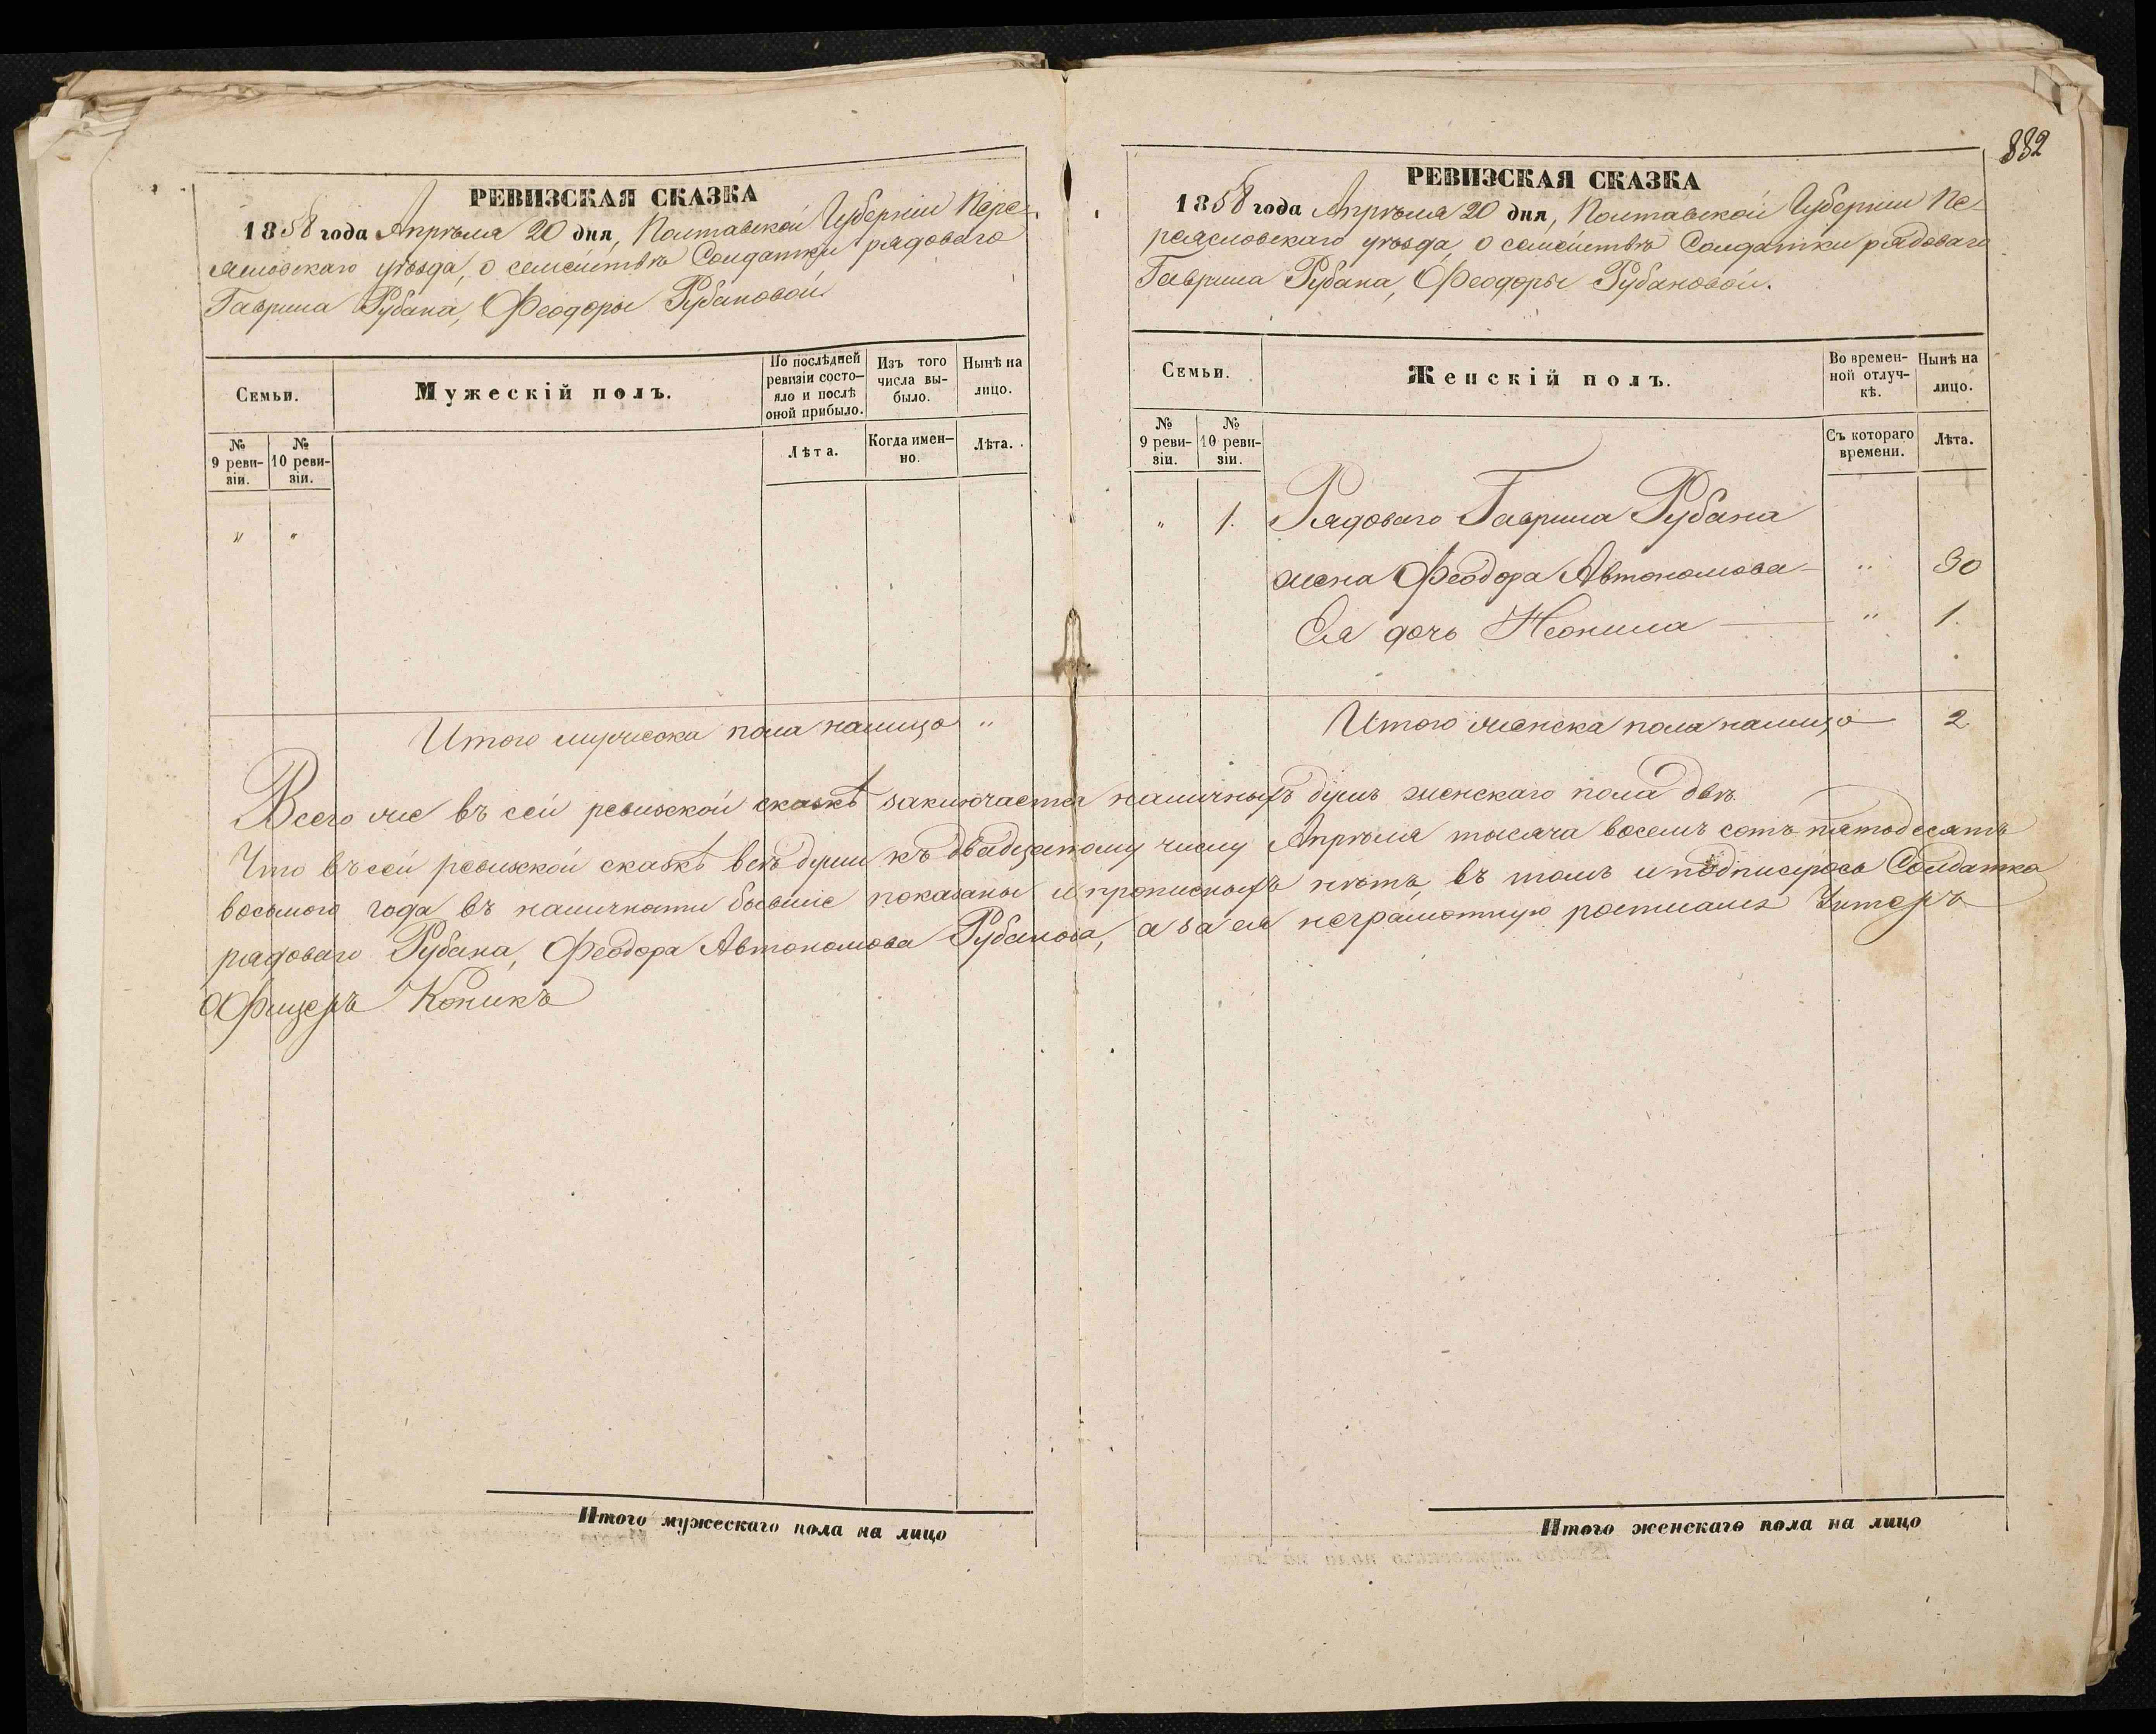 882
РЕВИЗСКАЯ СКАЗКА
1858 года Апрѣля 20 дня, Полтавской Губерніи Пере-
яславскаго уѣзда, о семействѣ Солдатки рядоваго
Гаврила Рубана, Феодоры Рубановой.
Семьи.
Мужескій полъ.
По послѣдней ревизіи состо-яло и послѣ оной прибыло.
Изъ того числа вы-было.
Нынѣ на лицо.
№ 9 реви-зіи.
№ 10 реви-зіи.
Лѣта.
Когда имен-но.
Лѣта.
" "
Итого мужеска пола налицо "
РЕВИЗСКАЯ СКАЗКА
1858 года Апрѣля 20 дня, Полтавской Губерніи Пе-
реясловскаго уѣзда, о семействѣ Солдатки рядоваго
Гаврила Рубана, Феодоры Рубановой.
Семьи.
Женскій полъ.
Во времен-ной отлуч-кѣ.
Нынѣ на лицо.
№ 9 реви-зіи.
№ 10 реви-зіи.
Съ котораго времени.
Лѣта.
" 1. Рядоваго Гаврила Рубана
жена Феодора Автономова " 30
Ея дочь Неонила " 1.
Итого женска пола налицо 2
Всего же въ сей ревизской сказкѣ заключается наличныхъ душъ женскаго пола двѣ.
Что въ сей ревизской сказкѣ всѣ души къ двадцатому числу Апрѣля тысяча восемь сотъ пятодесятъ
восьмого года въ наличности бывшіе показаны и прописныхъ нѣтъ, въ томъ и подписуюсь Солдатка
рядоваго Рубана, Феодора Автономова Рубанова, а за ея неграмотную росписался Унтеръ
Офицеръ Коникъ
Итого мужескаго пола на лицо
Итого женскаго пола на лицо